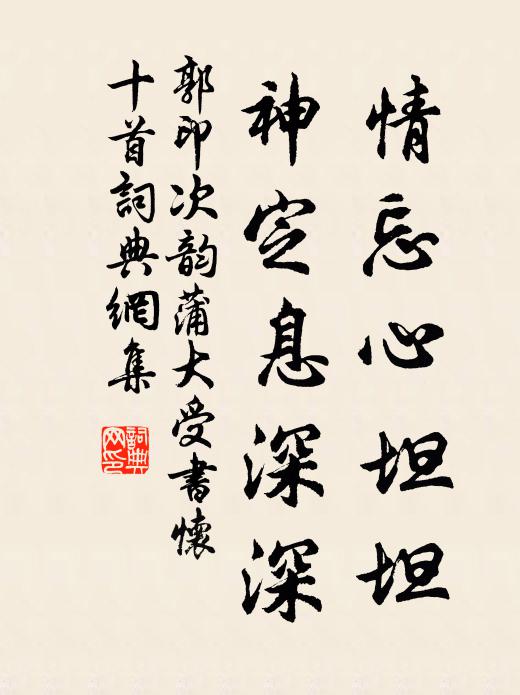 情忘心坦坦
神定息深深
郭印次韵蒲大受書懷
十首詞典網集
詞典
网印